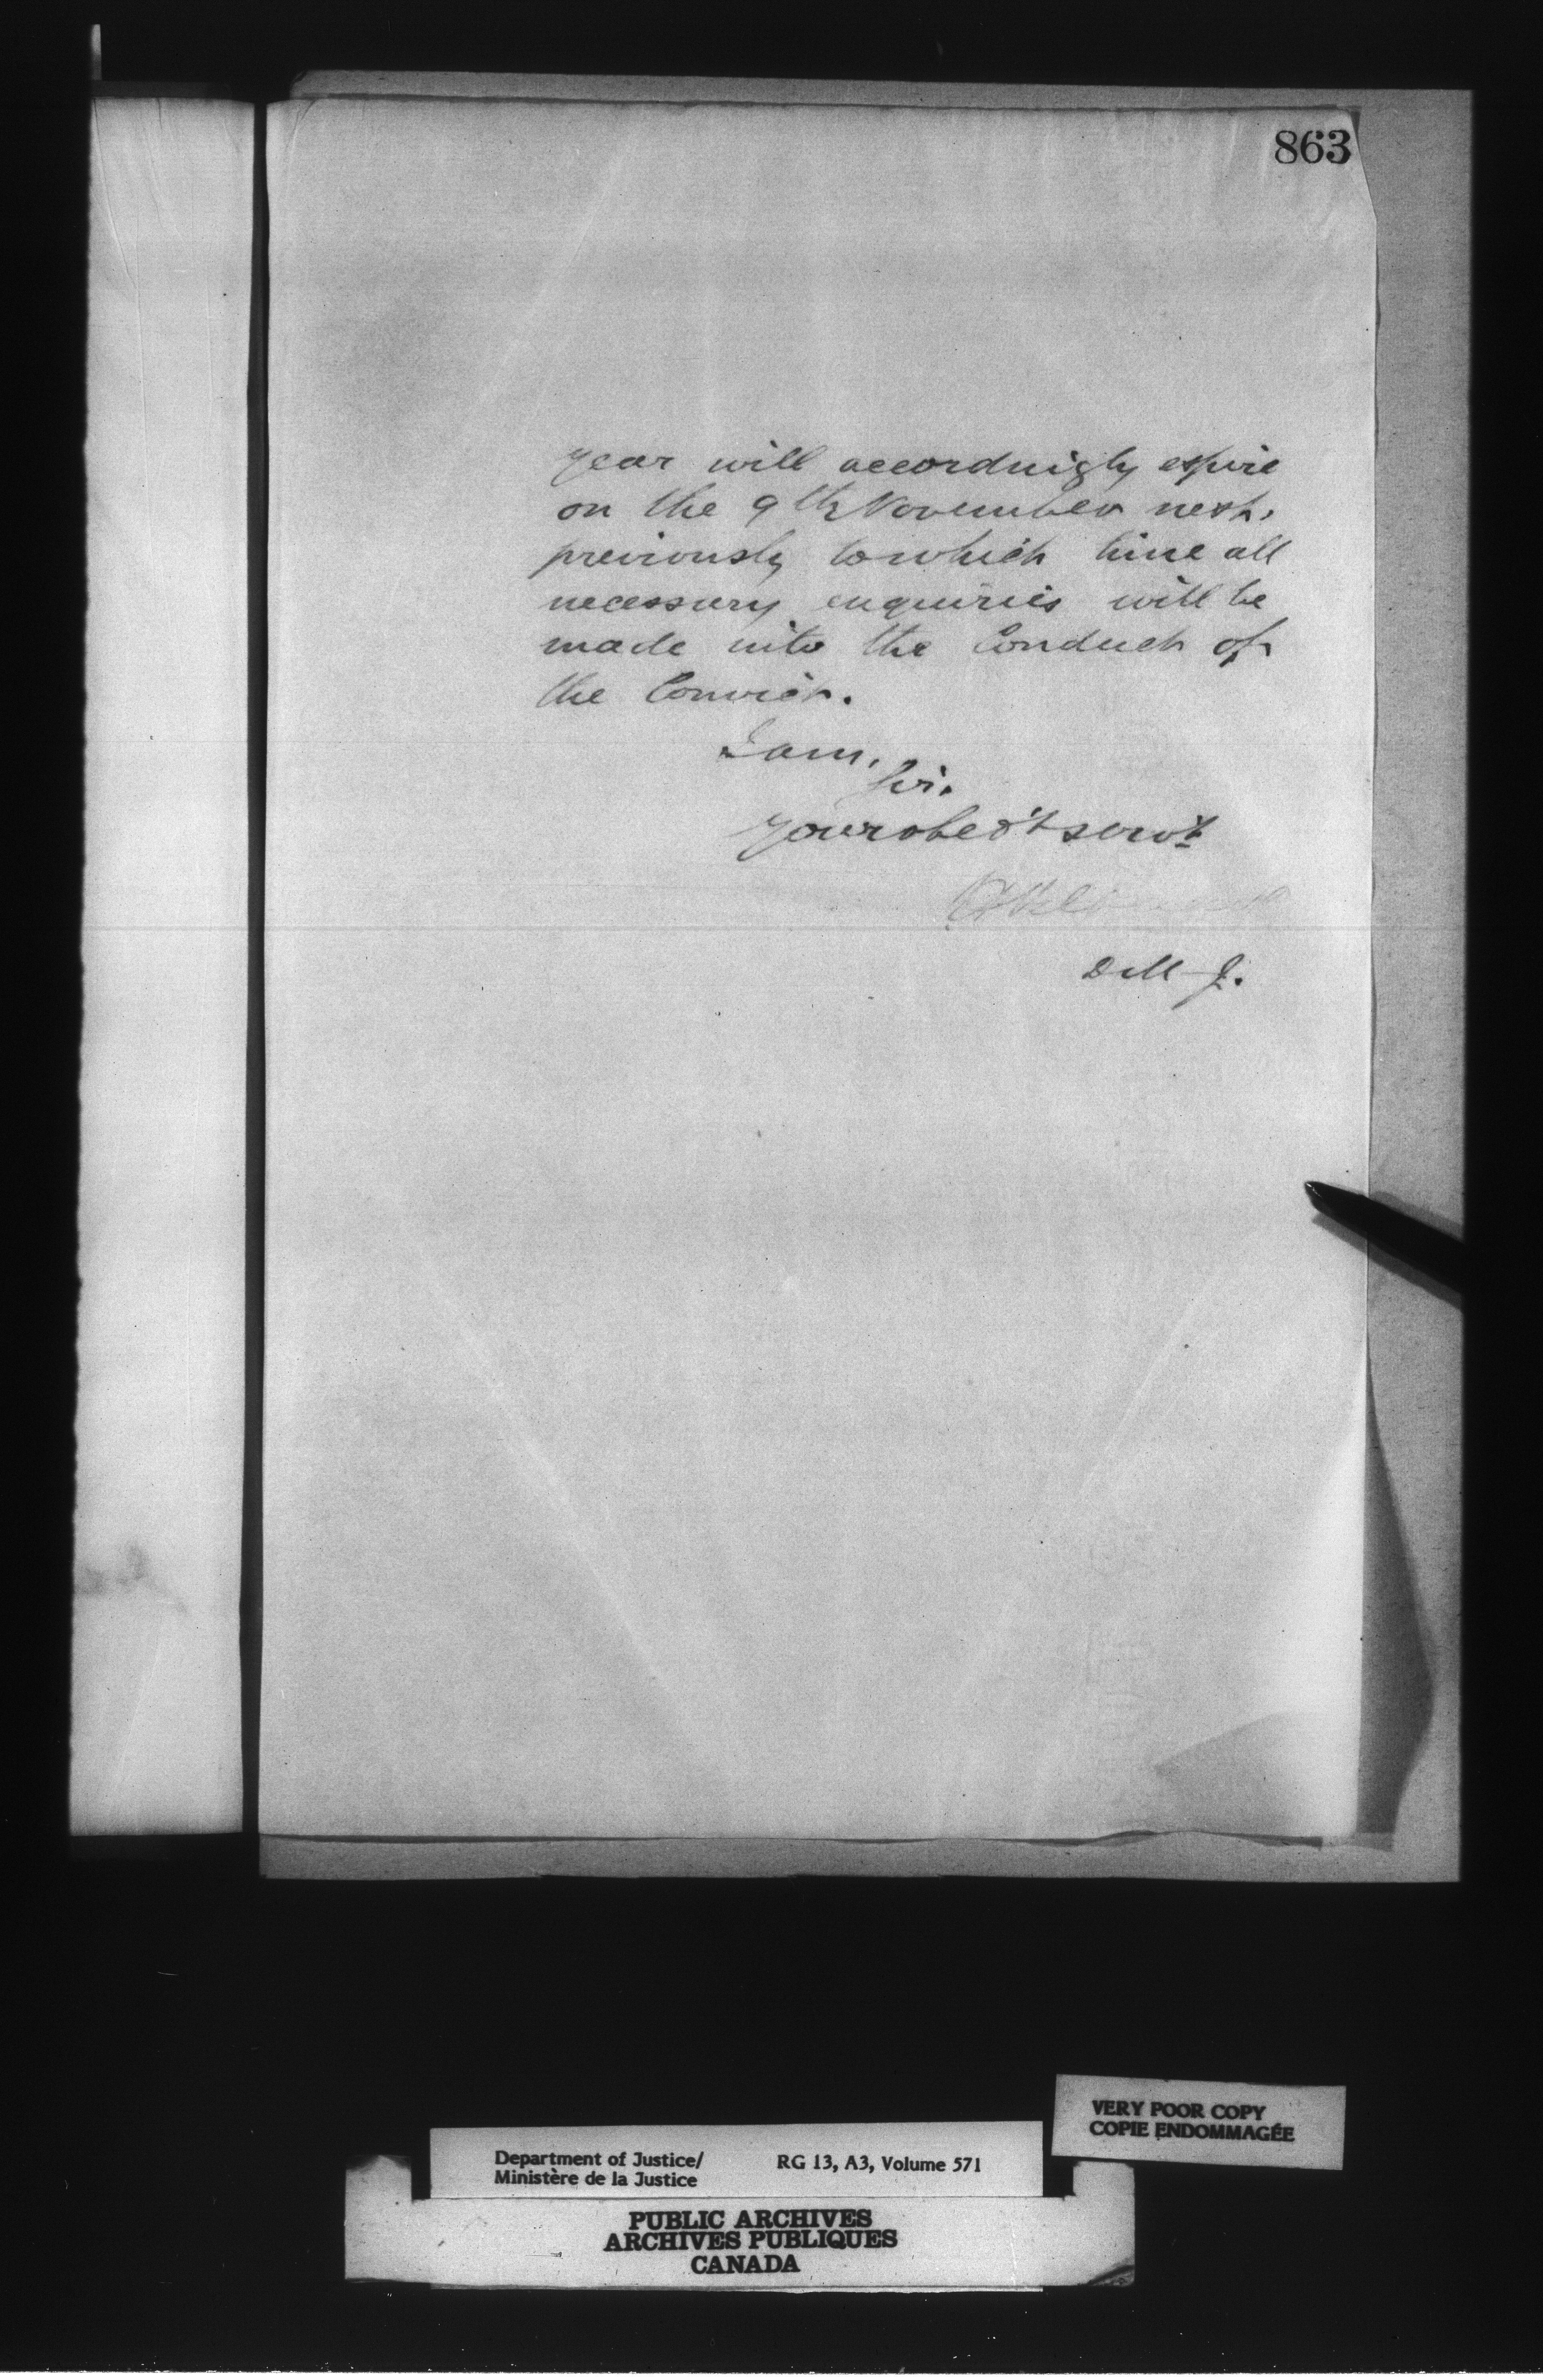 863
year will accordingly expire
on the 9th November next,
previously to which time all
necessary enquiries will be
made into the Conduct of
the Convict.
I am,
Sir.
Your obed't serv't
D M J.
VERY POOR COPY
COPIE ENDOMMAGÉE
Department of Justice/ RG 13, A3, Volume 571
Ministère de la Justice
PUBLIC ARCHIVES
ARCHIVES PUBLIQUES
CANADA